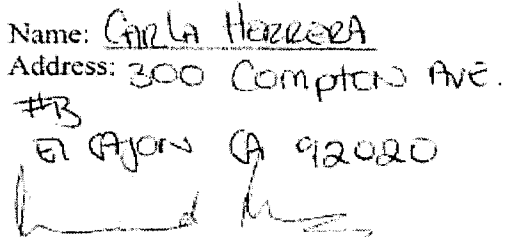 Name: CARLA HERRERA
Address: 300 Compton AVE.
#B
El CAJON CA 92020